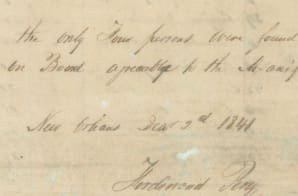 the only Four persons were found
on Board agreeably to the Manif
New Orleans Decr 2d 1841
Ferdinand